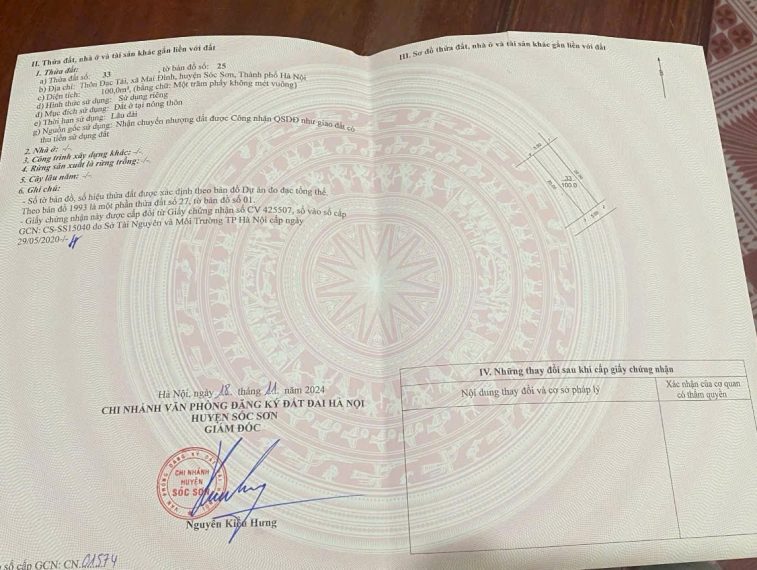 II. Thửa đất, nhà ở và tài sản khác gắn liền với đất
1. Thửa đất:
a) Thửa đất số: 33 , tờ bản đồ số: 25
b) Địa chỉ: Thôn Đạc Tài, xã Mai Đình, huyện Sóc Sơn, Thành phố Hà Nội
c) Diện tích: 100,0m², (bằng chữ: Một trăm phẩy không mét vuông)
d) Hình thức sử dụng: Sử dụng riêng
đ) Mục đích sử dụng: Đất ở tại nông thôn
e) Thời hạn sử dụng: Lâu dài
g) Nguồn gốc sử dụng: Nhận chuyển nhượng đất được Công nhận QSDĐ như giao đất có
thu tiền sử dụng đất
2. Nhà ở: -/-
3. Công trình xây dựng khác: -/-
4. Rừng sản xuất là rừng trồng: -/-
5. Cây lâu năm: -/-
6. Ghi chú:
- Số tờ bản đồ, số hiệu thửa đất được xác định theo bản đồ Dự án đo đạc tổng thể.
Theo bản đồ 1993 là một phần thửa đất số 27, tờ bản đồ số 01.
- Giấy chứng nhận này được cấp đổi từ Giấy chứng nhận số CV 425507, số vào sổ cấp
GCN: CS-SS15040 do Sở Tài Nguyên và Môi Trường TP Hà Nội cấp ngày
29/05/2020-/-
Hà Nội, ngày 18 tháng 11 năm 2024
CHI NHÁNH VĂN PHÒNG ĐĂNG KÝ ĐẤT ĐAI HÀ NỘI
HUYỆN SÓC SƠN
GIÁM ĐỐC
CHI NHÁNH
HUYỆN
SÓC SƠN
Nguyễn Kiều Hưng
số cấp GCN: CN.01574
III. Sơ đồ thửa đất, nhà ở và tài sản khác gắn liền với đất
B
5.00
20.00
33
100.0
20.00
5.00
IV. Những thay đổi sau khi cấp giấy chứng nhận
Nội dung thay đổi và cơ sở pháp lý
Xác nhận của cơ quan
có thẩm quyền